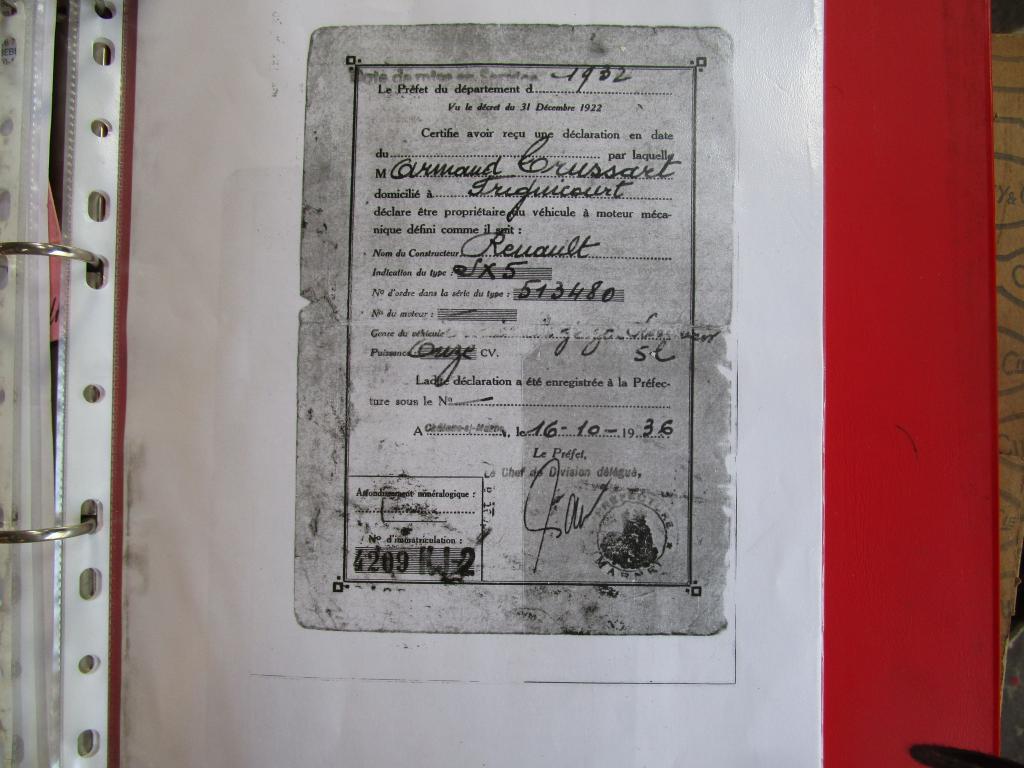 Date de mise en Service 1932
Le Préfet du département d
Vu le décret du 31 Décembre 1922
Certifie avoir reçu une déclaration en date
du par laquelle
M Armand Crussart
domicilié à
déclare être propriétaire du véhicule à moteur méca-
nique défini comme il suit :
Nom du Constructeur Renault
Indication du type : SX5
No d'ordre dans la série du type : 513480
No du moteur :
Genre du véhicule
Puissance Onze CV.
Ladite déclaration a été enregistrée à la Préfec-
ture sous le No
A Châlons-s/-Marne, le 16-10-1936
Le Préfet,
Le Chef de Division délégué,
Arrondissement minéralogique :
No d'immatriculation :
4209 KJ-2
MARNE